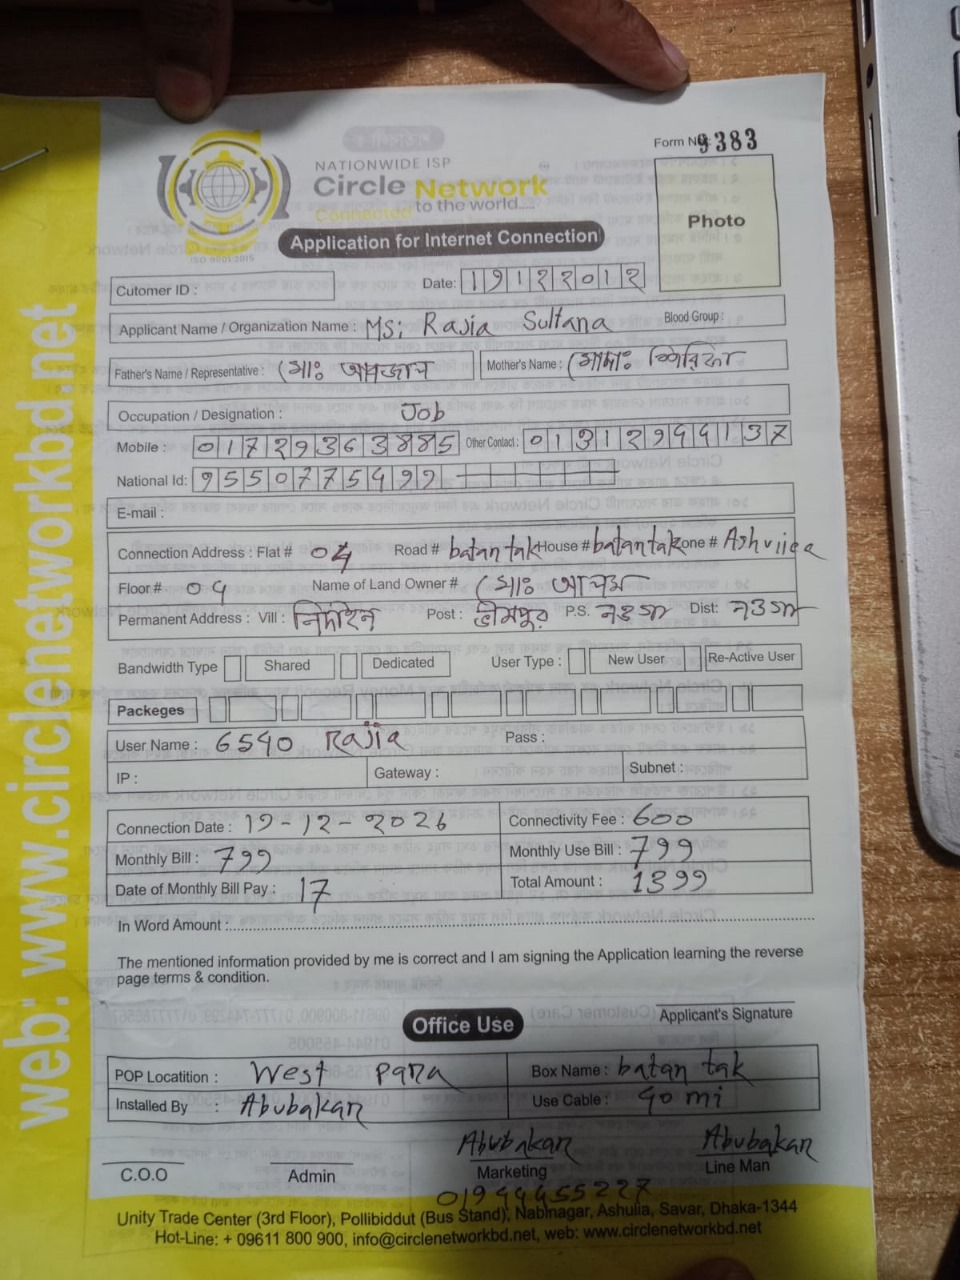 Form No. 9383
NATIONWIDE ISP
Circle Network
Connected to the world....
ISO 9001:2015
Photo
Application for Internet Connection
Cutomer ID :
Date: 19122012
Applicant Name / Organization Name : MS; Rajia Sultana Blood Group :
Father's Name / Representative : মোঃ আবজাল Mother's Name : মোছাঃ শরিফা
Occupation / Designation : Job
Mobile : 01729363885 Other Contact : 01312944137
National Id: 9550775499
E-mail :
Connection Address : Flat # 04 Road # batan tak House # batan tak one # Ashuliea
Floor # 04 Name of Land Owner # মোঃ আলম
Permanent Address : Vill : Post : ভীমপুর P.S. নওগাঁ Dist: নওগাঁ
Bandwidth Type Shared Dedicated User Type : New User Re-Active User
Packeges
User Name : 6540 Rajia Pass :
IP : Gateway : Subnet :
Connection Date : 19-12-2026 Connectivity Fee : 600
Monthly Bill : 799 Monthly Use Bill : 799
Date of Monthly Bill Pay : 17 Total Amount : 1399
In Word Amount :
The mentioned information provided by me is correct and I am signing the Application learning the reverse
page terms & condition.
Applicant's Signature
Office Use
POP Locatition : West para Box Name : batan tak
Installed By Abubakar Use Cable : 90 mi
Abubakar Abubakar
C.O.O Admin Marketing Line Man
01944455227
Unity Trade Center (3rd Floor), Pollibiddut (Bus Stand), Nabinagar, Ashulia, Savar, Dhaka-1344
Hot-Line: + 09611 800 900, info@circlenetworkbd.net, web: www.circlenetworkbd.net
web: www.circlenetworkbd.net